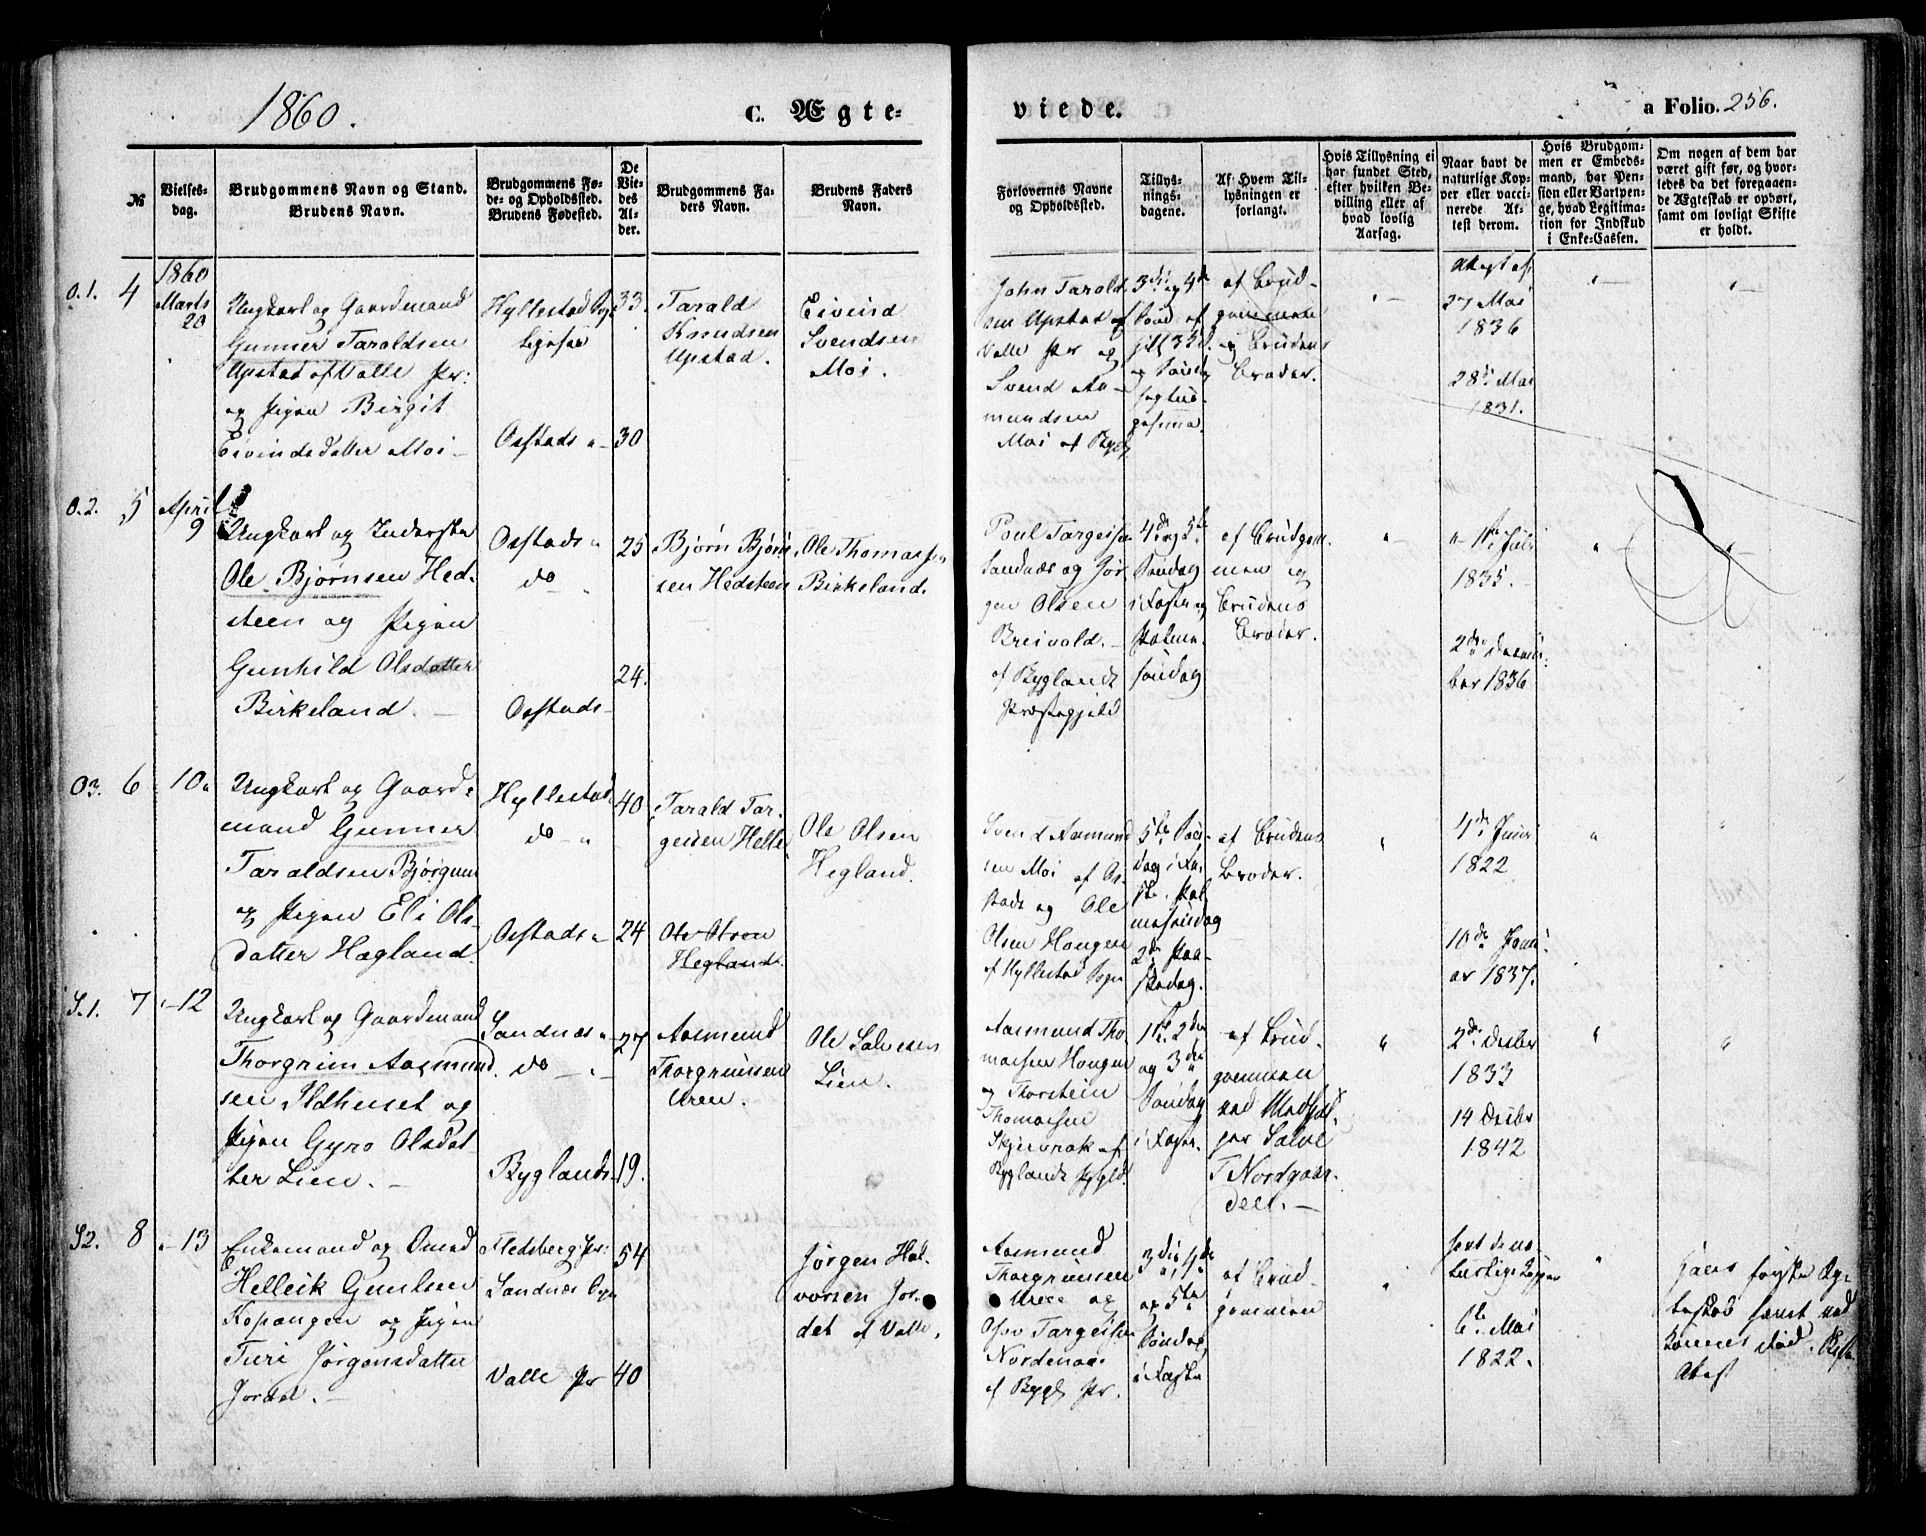 1860.
C. Ægte=
viede.
a Folio. 256.
№
Vielses-
dag.
Brudgommens Navn og Stand.
Brudens Navn.
Brudgommens Fø-
de- og Opholdssted.
Brudens Fødested.
De
Vie-
des
Al-
der.
Brudgommens Fa-
ders Navn.
Brudens Faders
Navn.
Forlovernes Navne
og Opholdssted.
Tillys-
nings-
dagene.
Af Hvem Til-
lysningen er
forlangt.
Hvis Tillysning ei
har fundet Sted,
efter hvilken Be-
villing eller af
hvad lovlig
Aarsag.
Naar havt de
naturlige Kop-
per eller vacci-
nerede At-
test derom.
Hvis Brudgom-
men er Embeds-
mand, har Pen-
sion eller Vartpen-
ge, hvad Legitima-
tion for Indskud
i Enke-Cassen.
Om nogen af dem har
været gift før, og hvor-
ledes da det foregaaen-
de Ægteskab er ophørt,
samt om lovligt Skifte
er holdt.
O.1. 4
1860
Marts
20
Ungkarl og Gaardmand
Gunner Taraldsen
Upstad af Valle Pr:
og Pigen Birgit
Eivindsdatter Moi
Hyllestad
Ostads
33.
30
Tarald
Knudsen
Upstad.
Eivind
Svendsen
Moi.
John Tarald-
sen Upstad af
Valle Pr og
Svend Aa-
mundsen
Moi af Bygl.
af Brud-
gommen
og Brudens
Broder.
27 Mai
1836
28de Mai
1831.
O.2. 5
April
9
Ungkarl og Inderste
Ole Bjørnsen Hed-
steen og Pigen
Gunhild Olsdatter
Birkeland.
Ostads
do
Ostads
25
24.
Bjørn Bjørn-
sen Hedsteen
Ole Thomassen
Birkeland.
Poul Targeisen
Sandnæs og Jør-
gen Olsen
Breivold.
af Byglands
Præstegjeld
4de og 5te
Søndag
i Faste og
Palme-
søndag
af Brudgom-
men og
Brudens
Broder.
1ste Juli
1835.
2den Decem-
ber 1836
O3. 6
10
Ungkarl og Gaard-
mand Gunner
Taraldsen Bjørgum
og Pigen Eli Ols-
datter Hægland.
Hyllestad
do
Ostads
40
24
Tarald Tar-
geisen Helle
Ole Olsen
Hegland.
Ole Olsen
Hegland.
Svend Aamund-
sen Moi af Os-
stads og Ole
Olsen Hougen
af Hyllestad Sogn
5te Søn-
dag i Fa-
ste. Pal-
mesøndag
2den Paa-
skedag.
af Brudens
Broder.
4de Juni
1822
10de Janu-
ar 1837.
S.1. 7
12
Ungkarl og Gaardmand
Thorgrim Aasmund-
sen Ildhuset og
Pigen Gyro Olsdat-
ter Lien.
Sandnæs
do
Byglands
27
19.
Aasmund
Thorgrimsen
Uren.
Ole Salvesen
Lien.
Aasmund Tho-
massen Hougen
og Thorstein
Thomassen
Skjevrak af
Byglands Pgjld.
1ste 2den
og 3die
Søndag
i Faste.
af Brud-
gommen
ved
Salve
T Nordgaar-
den.
2den Decbr
1833
14 Decbr
1842
S2. 8
13
Enkemand og
Helleik Gunlsen
Kopangen og Pigen
Turi Jørgensdatter
Jordet.
Flesberg Pr:
Sandnæs Sogn
Valle Pr
54
40
Jørgen Hal-
vorsen Jor-
det af Valle.
Aasmund
Thorgrimsen
Uren og
Targeisen
Nordenaa
af Bygl. Pr.
3die, 4de
og 5te
Søndag
i Faste
af Brud-
gommen
havt de na-
turlige Kopper
6te Mai
1822.
Hans første Æg-
teskab hævet ved
Konens Død. Skifte
Attest